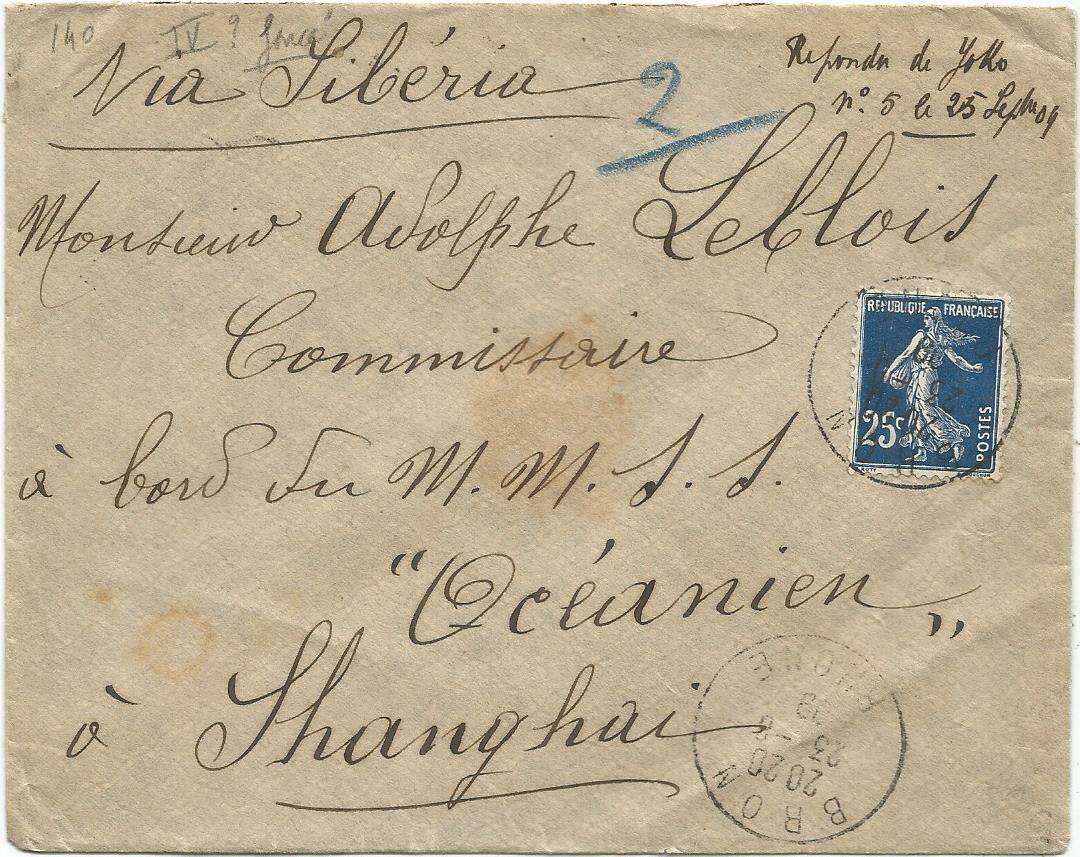 140 IV ?
Via Sibéria
2
Repondu de Yoko
n° 5 le 25 Sept 09
Monsieur Adolphe Leblois
Commissaire
à bord du M. M. S. S.
"Océanien"
à Shanghai
REPUBLIQUE FRANÇAISE
25c
POSTES
BRON
RHONE
20 20
23 - 8
09